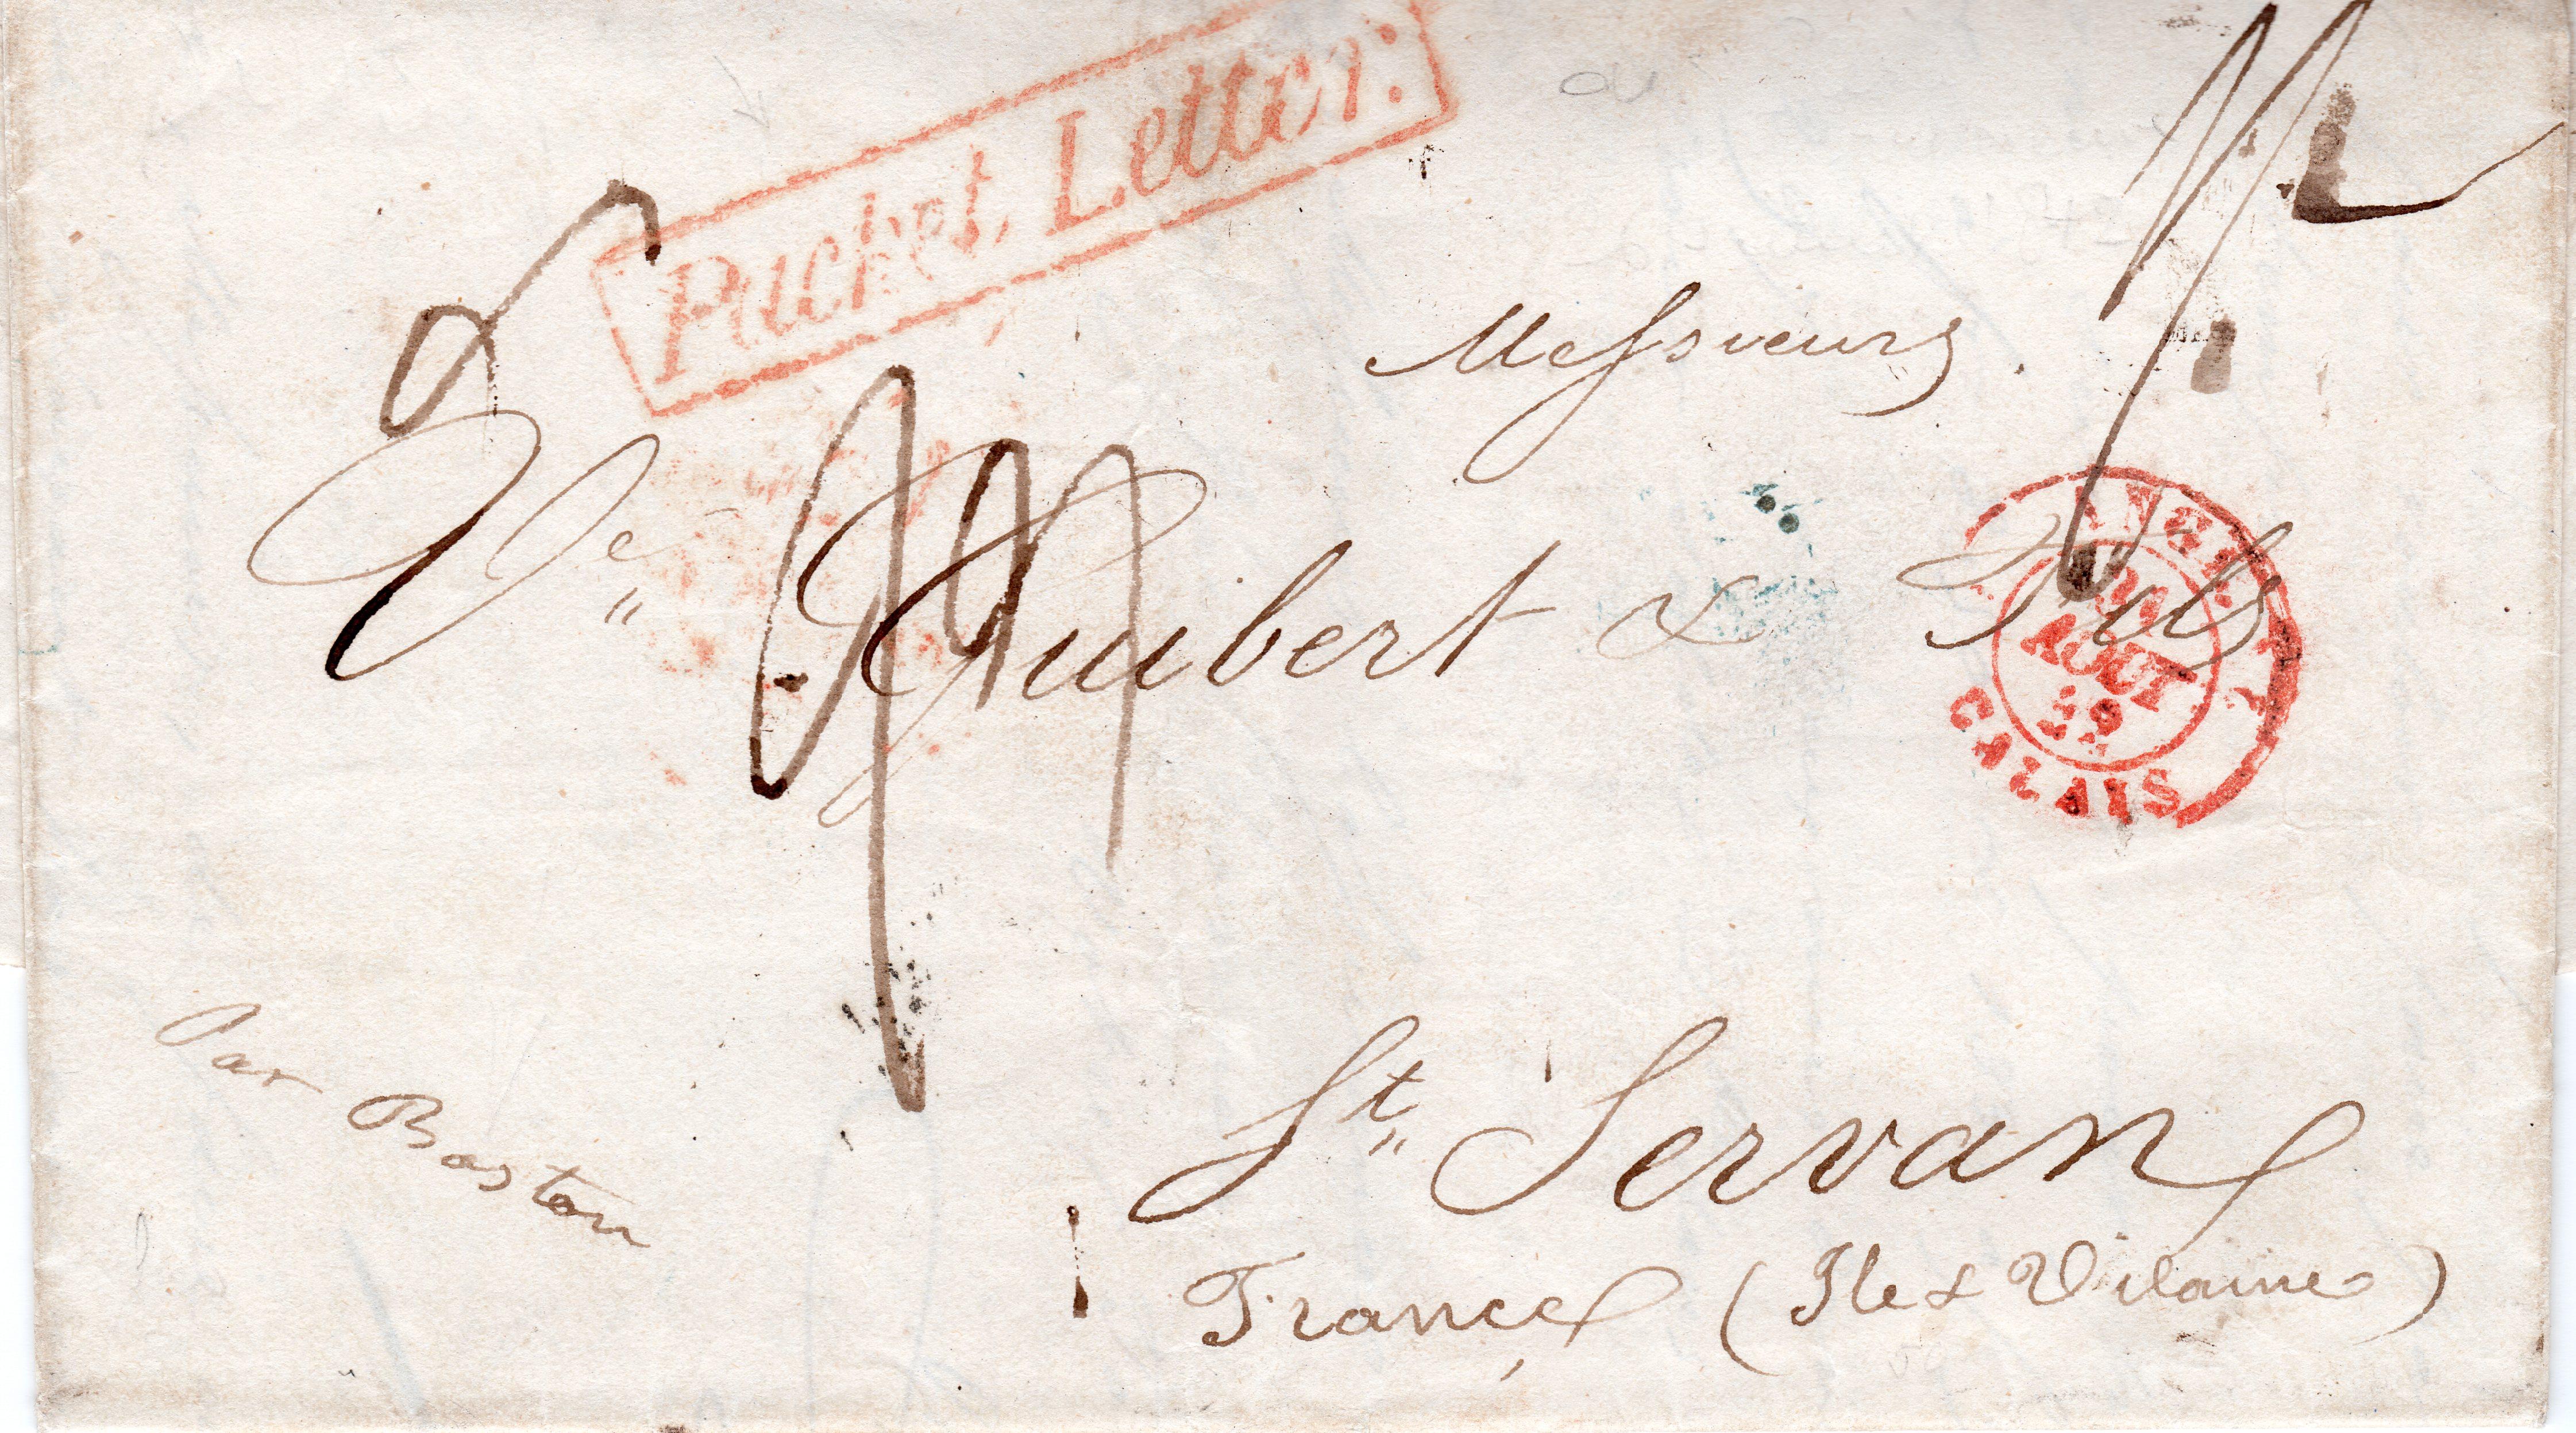 Packet, Letter:
Messieurs
Ve Guibert & Fils
ANGL.
AOUT
CALAIS
Par Boston
St Servan
France (Ile & Vilaine)